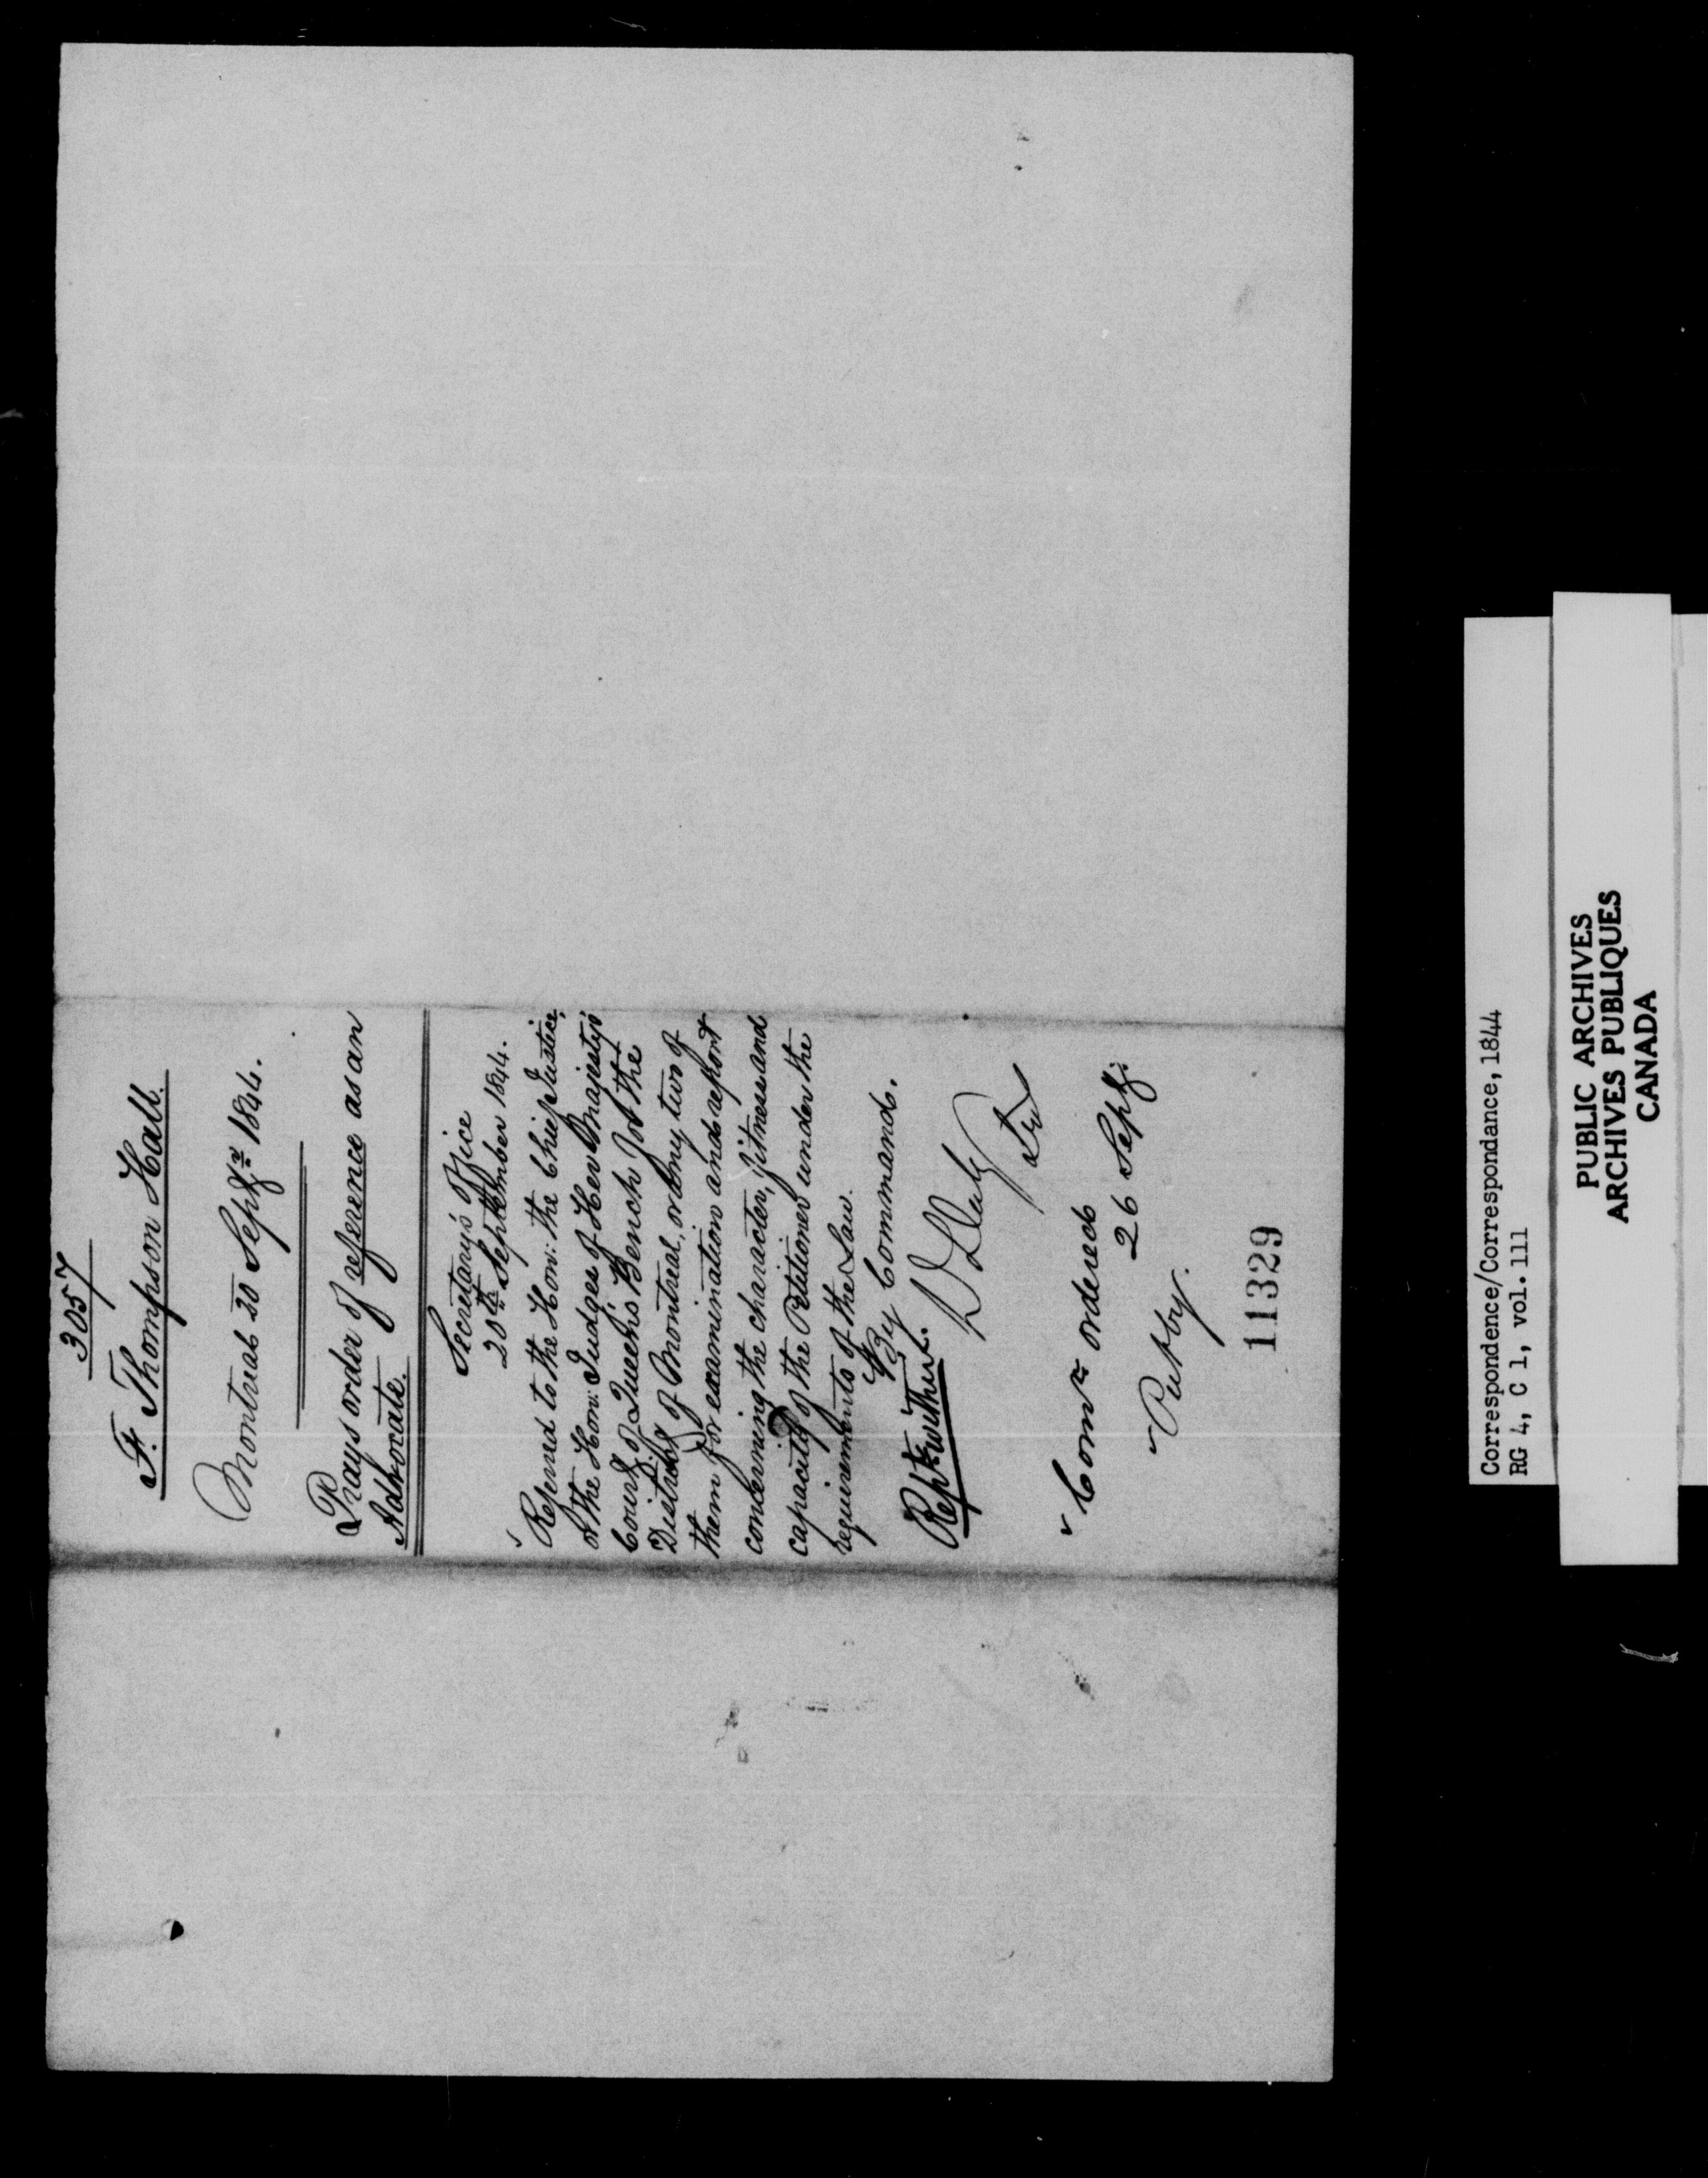 3057
F. Thompson Hall.
Montreal 20 Septr. 1844.
Prays order of reference as an
Advocate.
Secretary's Office
20th September 1844.
Referred to the Hon: the Chief Justice,
or the Hon: Judges of Her Majesty's
Court of Queen's Bench for the
District of Montreal, or any two of
them for examination and report
concerning the character, fitness and
capacity of the Petitioner under the
requirements of the Law.
By Command.
Rept. within.
D Daly
Comn. ordered
26 Sept.
11329
Correspondence/Correspondance, 1844
RG 4, C 1, vol. 111
PUBLIC ARCHIVES
ARCHIVES PUBLIQUES
CANADA